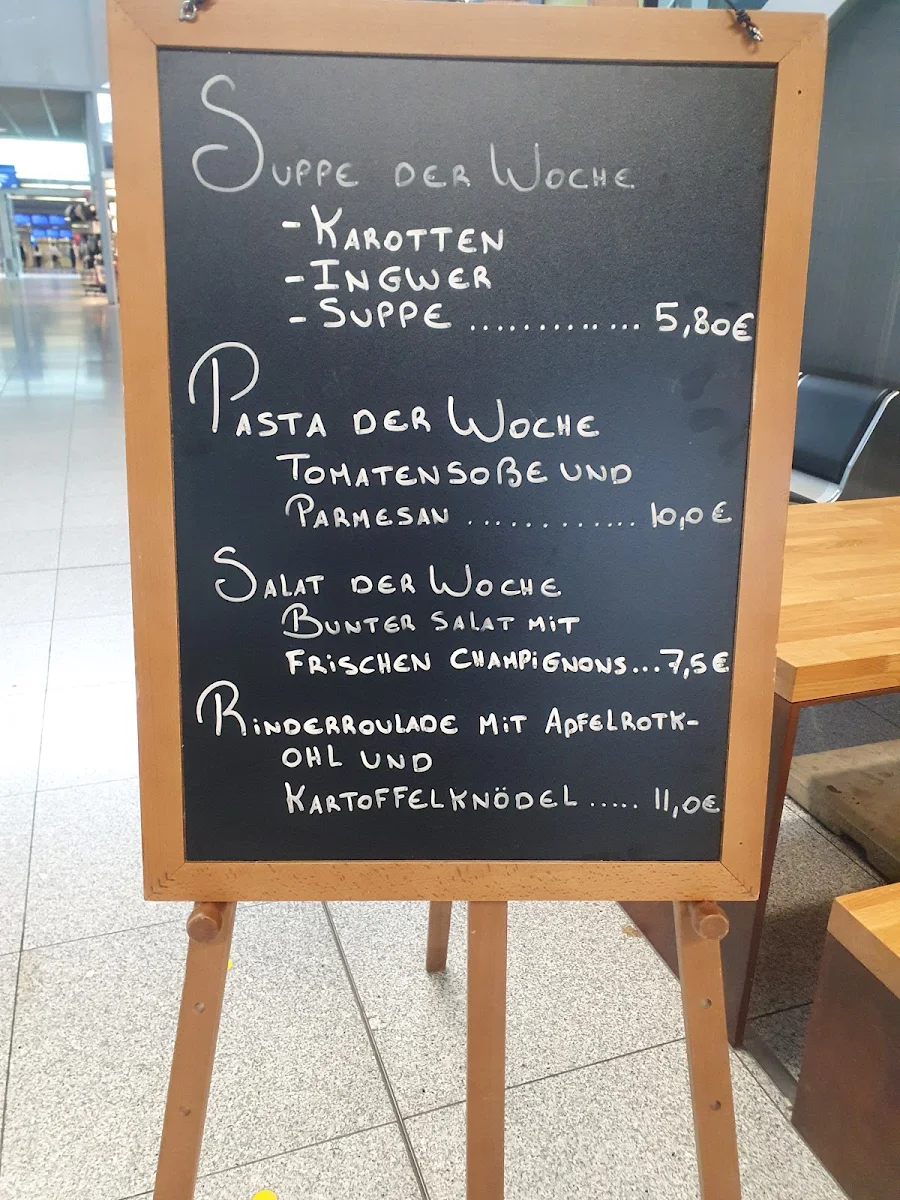 SUPPE DER WOCHE
- KAROTTEN
- INGWER
- SUPPE ............ 5,80€
PASTA DER WOCHE
TOMATENSOßE UND
PARMESAN ............ 10,0€
SALAT DER WOCHE
BUNTER SALAT MIT
FRISCHEN CHAMPiGNONS...7,5€
RINDERROULADE MiT APFELROTK-
OHL UND
KARTOFFELKNÖDEL ..... 11,0€